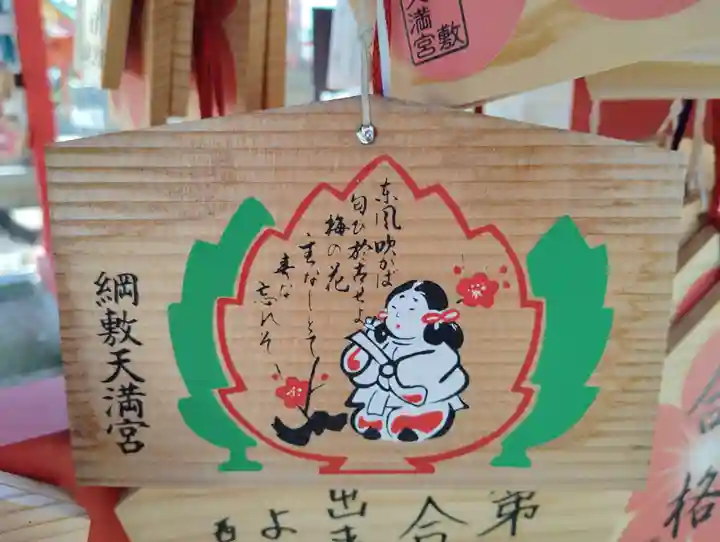 東風吹かば
匂ひ於古せよ
梅の花
主なしとて
春な
忘れそ
綱敷天満宮
敷
天満宮
合格
第
合
出ま
よ